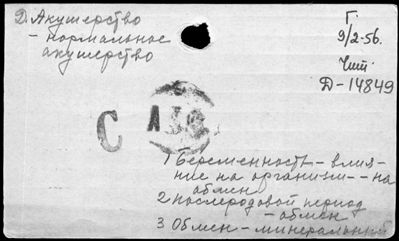 Д. Акушерство
- нормальное
акушерство
Г.
9/2-56.
Чит.
Д-14849
С
1 Беременность - влия-
ние на организм - на
обмен
2 послеродовой период
- обмен
3 Обмен - минеральный